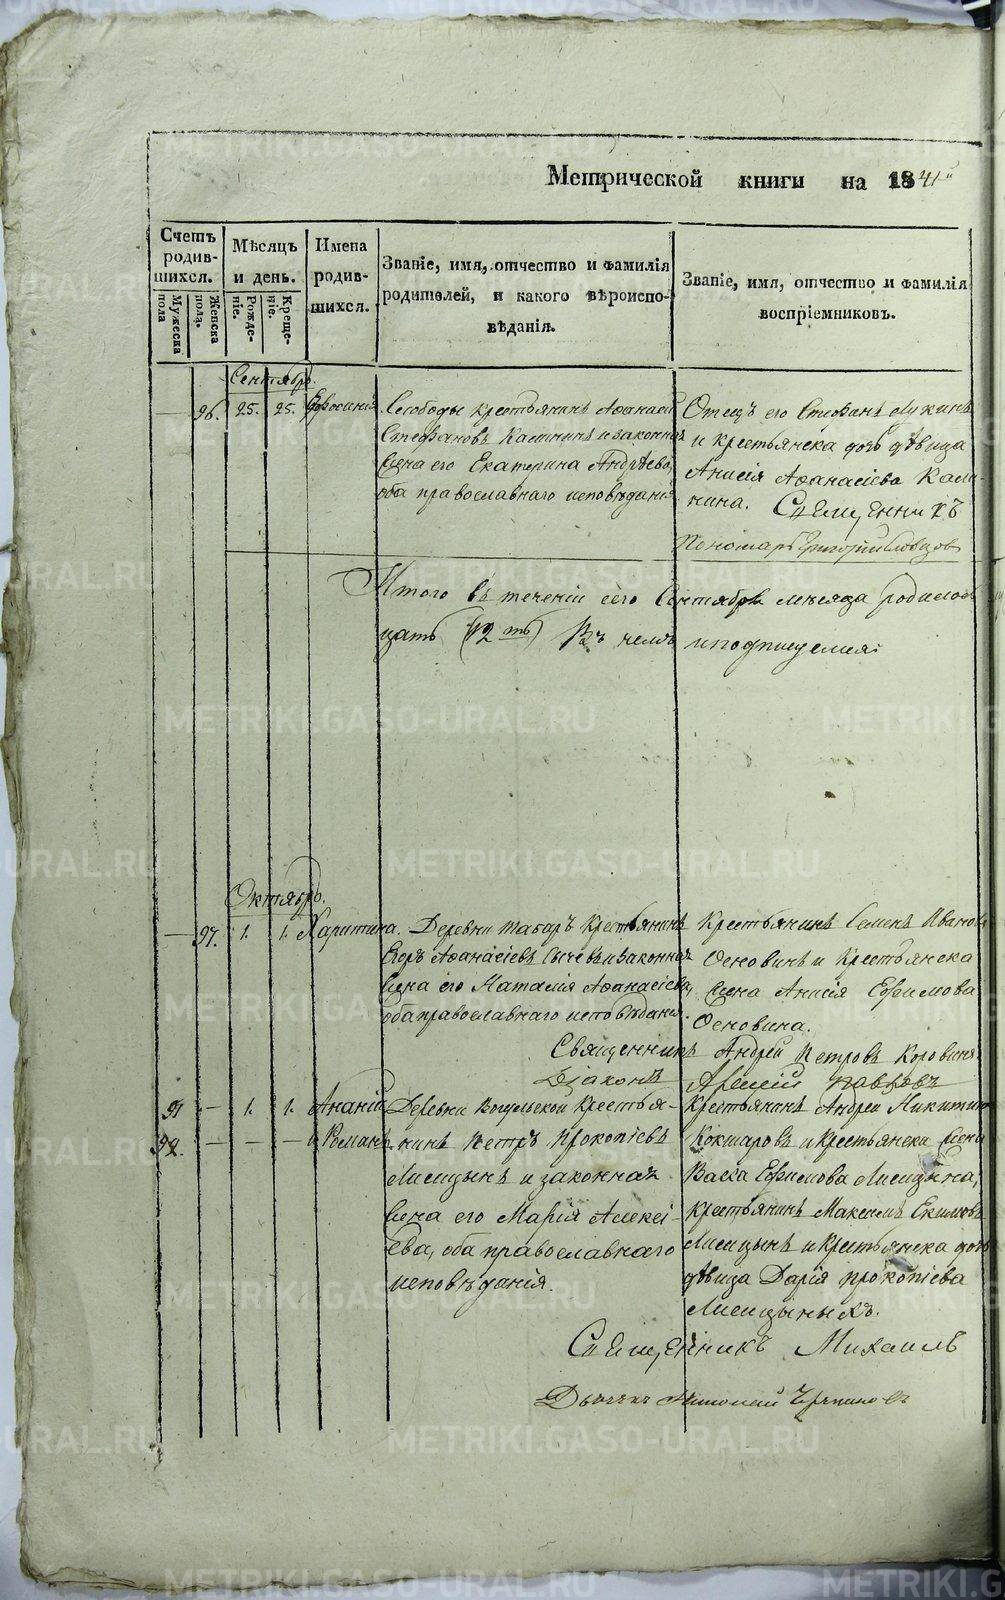 Метрической книги на 1841й
Счетъ родившихся.
Мужеска пола
Женска пола.
Мѣсяцъ и день.
Рожденіе.
Крещеніе.
Имена родившихся.
Званіе, имя, отчество и фамилія родителей, и какого вѣроисповѣданія.
Званіе, имя, отчество и фамилія воспріемниковъ.
Сентябрь.
96. 25. 25. Ефросинія
Слободы крестьянинъ Аѳанасій
Стефановъ Калининъ и законная
жена его Екатерина Андрѣева,
оба православнаго исповѣданія
Отецъ его Стефанъ Лукинъ
и крестьянска дочь дѣвица
Анисія Аѳанасіева Кали-
нина. Священникъ
Пономарь Григорій Словцовъ
Итого въ теченіи сего Сентября мѣсяца родилос
цать (12ть) Въ чемъ и подпишуемся:
Октябрь.
97. 1. 1. Харитина.
Деревни Таборъ крестьянинъ
Егоръ Аѳанасіевъ Сычевъ и законная
жена его Наталія Аѳанасіева,
оба православнаго исповѣданія.
Крестьянинъ Семенъ Иванов
Основинъ и крестьянска
жена Анисія Ефимова
Основина.
Священникъ Андрей Петровъ Коровинъ
Діаконъ Арсеній Павловъ
91 — 1. 1. Ананій
92. — — — и Романъ.
Деревни Вогульской крестья-
нинъ Петръ Прокопіевъ
Лисицынъ и законная
жена его Марія Алексі-
ева, оба православнаго
исповѣданія.
Крестьянинъ Андрей Никитин
Кокшаровъ и крестьянски жена
Васса Ефимова Лисицына,
крестьянинъ Максимъ Екимовъ
Лисицынъ и крестьянска дочь
дѣвица Дарія Прокопіева
Лисицыныхъ.
Священникъ Михаилъ
Дьячекъ Николай